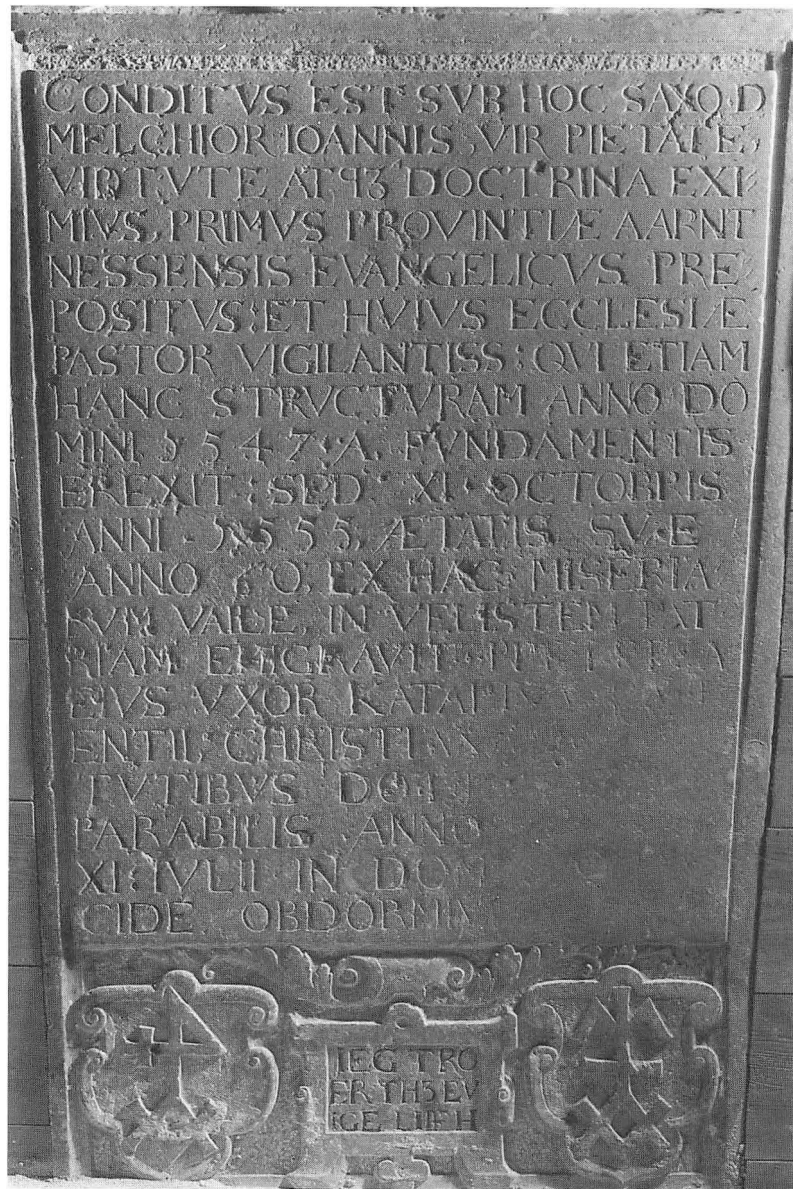 CONDITVS EST SVB HOC SAXO D
MELCHIOR IOANNIS, VIR PIETATE,
VIRTVTE ATQ3 DOCTRINA EXI
MIVS, PRIMVS PROVINTIÆ AARNT
NESSENSIS EVANGELICVS PRE
POSITVS: ET HVIVS ECCLESIÆ
PASTOR VIGILANTISS: QVI ETIAM
HANC STRVCTVRAM ANNO DO
MINI 1547 A FVNDAMENTIS
EREXIT: SED XI OCTOBRIS
ANNI 1555, ÆTATIS SVÆ
ANNO EX HAC MISERIA
RVM VALLE, IN PAT
RIAM EMIGRAVIT
EIVS VXOR
ENTII,
TVTIBVS
PARABILIS ANNO
XI: IVLII IN DOM
CIDE OBDORMIV
IEG TRO
ER TH3 EV
IGE LIIFF H